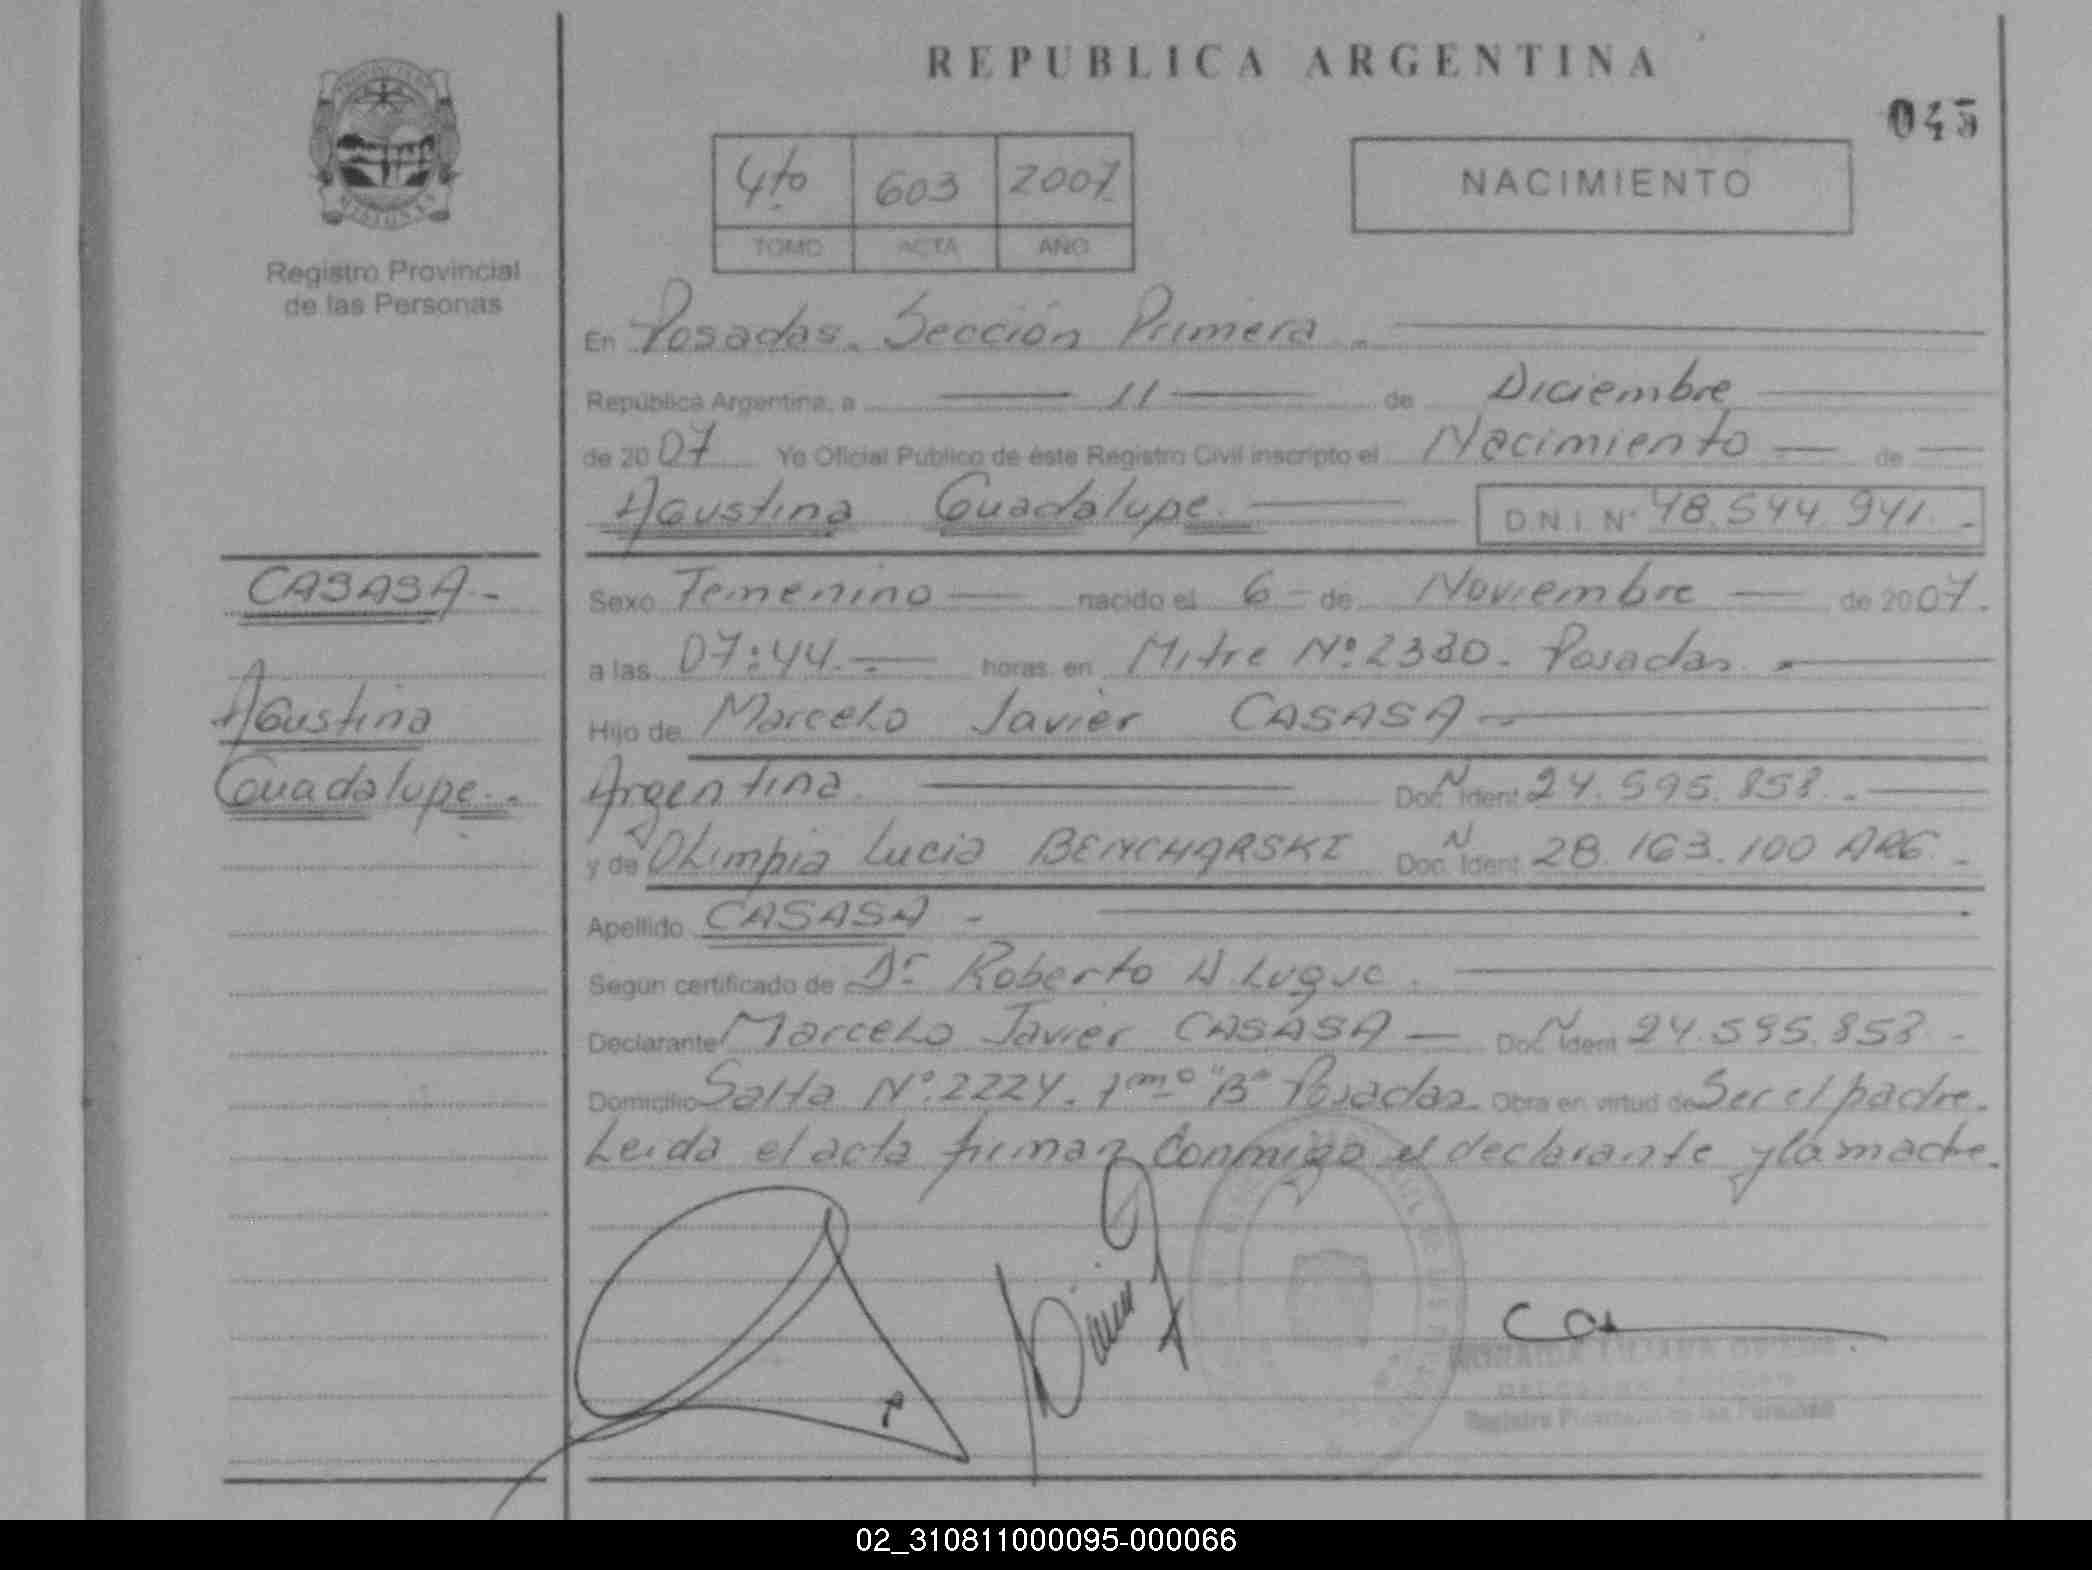 REPUBLICA ARGENTINA
045
4to 603 2007
TOMO ACTA AÑO
NACIMIENTO
Registro Provincial
de las Personas
En Posadas. Sección Primera.
República Argentina, a 11 de Diciembre
de 2007 Yo Oficial Público de éste Registro Civil inscripto el Nacimiento de
Agustina Guadalupe. D.N.I. Nº 48.544.941.-
CASASA.-
Agustina
Guadalupe.-
Sexo Femenino nacido el 6 de Noviembre de 2007.
a las 07:44.- horas en Mitre Nº 2330. Posadas.-
Hijo de Marcelo Javier CASASA
Argentina. Doc. Ident. 24.595.858.-
y de Olimpia Lucia BENCHARSKI Doc. Ident. 28.163.100 ARG.-
Apellido CASASA -
Según certificado de Dr Roberto A. Luque.
Declarante Marcelo Javier CASASA — Doc. Ident. 24.595.858.-
Domicilio Salta Nº 2224. 1mo "B" Posadas. Obra en virtud de Ser el padre.
Leida el acta firman conmigo el declarante y la madre.
Registro Provincial de las Personas
02_310811000095-000066